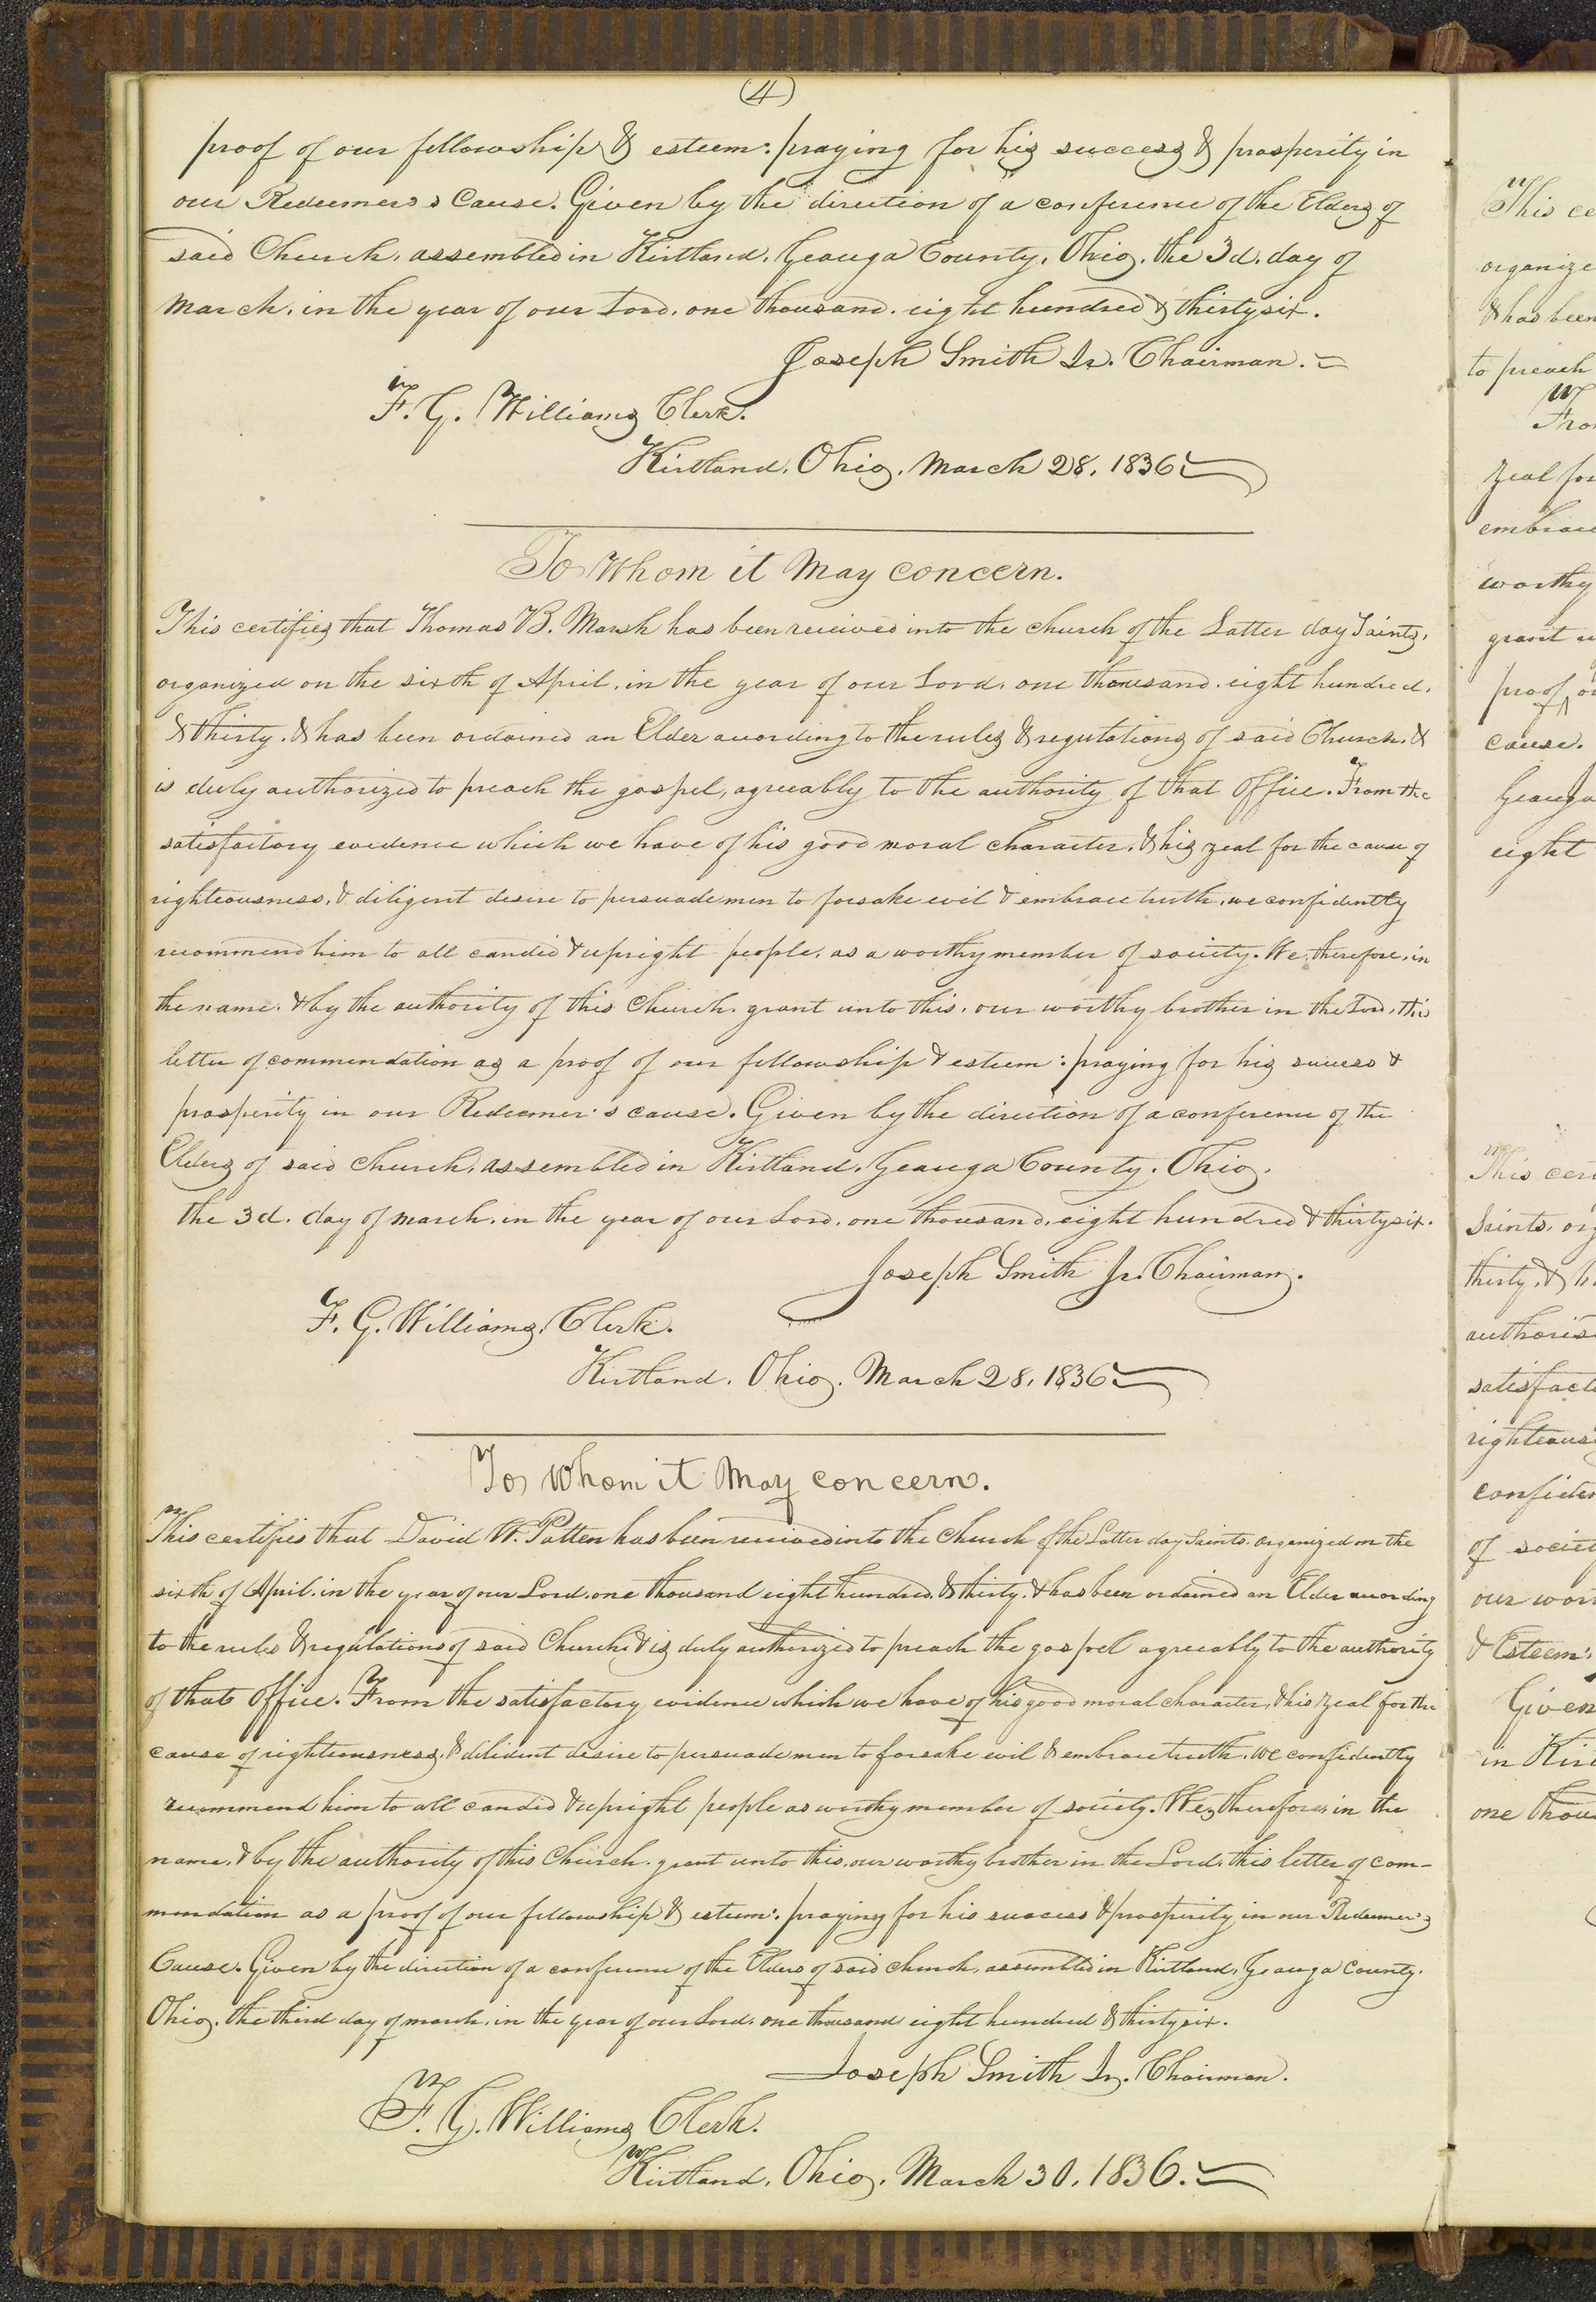 (4)
proof of our fellowship & esteem: praying for his success & prosperity in
our Redeemer's Cause. Given by the direction of a conference of the Elders of
said Church, assembled in Kirtland, Geauga County, Ohio, the 3d. day of
March, in the year of our Lord, one thousand, eight hundred & thirty six.
Joseph Smith Jr. Chairman.
F. G. Williams Clerk.
Kirtland, Ohio, March 28, 1836
To Whom it May concern.
This certifies that Thomas B. Marsh has been received into the church of the Latter day Saints,
organized on the sixth of April, in the year of our Lord, one thousand, eight hundred,
& thirty, & has been ordained an Elder according to the rules & regulations of said Church, &
is duly authorized to preach the gospel, agreeably to the authority of that Office. From the
satisfactory evidence which we have of his good moral character, & his zeal for the cause of
righteousness, & diligent desire to persuade men to forsake evil & embrace truth, we confidently
recommend him to all candid & upright people, as a worthy member of society. We, therefore, in
the name, & by the authority of this Church, grant unto this, our worthy brother in the Lord, this
letter of commendation as a proof of our fellowship & esteem: praying for his success &
prosperity in our Redeemer's cause. Given by the direction of a conference of the
Elders of said church, assembled in Kirtland, Geauga County, Ohio,
the 3d. day of march, in the year of our Lord, one thousand, eight hundred & thirty six.
Joseph Smith Jr. Chairman.
F. G. Williams, Clerk.
Kirtland, Ohio, March 28, 1836
To Whom it May concern.
This certifies that David W. Patten has been received into the Church of the Latter day Saints, organized on the
sixth of April, in the year of our Lord, one thousand eight hundred, & thirty, & has been ordained an Elder according
to the rules & regulations of said Church & is duly authorized to preach the gospel agreeably to the authority
of that Office. From the satisfactory evidence which we have of his good moral character, & his zeal for the
cause of righteousness, & dilident desire to persuade men to forsake evil & embrace truth, we confidently
recommend him to all candid & upright people as worthy member of society. We, therefore, in the
name, & by the authority of this Church, grant unto this, our worthy brother in the Lord, this letter of com-
mendation as a proof of our fellowship & esteem: praying for his success & prosperity in our Redeemer's
Cause. Given by the direction of a conference of the Elders of said church, assembled in Kirtland, Geauga County,
Ohio, the third day of march, in the year of our Lord, one thousand eight hundred & thirty six.
Joseph Smith Jr. Chairman.
F. G. Williams Clerk.
Kirtland, Ohio, March 30, 1836.
This ce
organize
& has been
to preach
Fro
zeal for
embrace
worthy
grant u
proof o
cause.
Geauga
eight
This cer
Saints, org
thirty, & h
authoris
satisfact
righteous
confiden
of societ
our wor
& Esteem:
Given
in Kirt
one thou